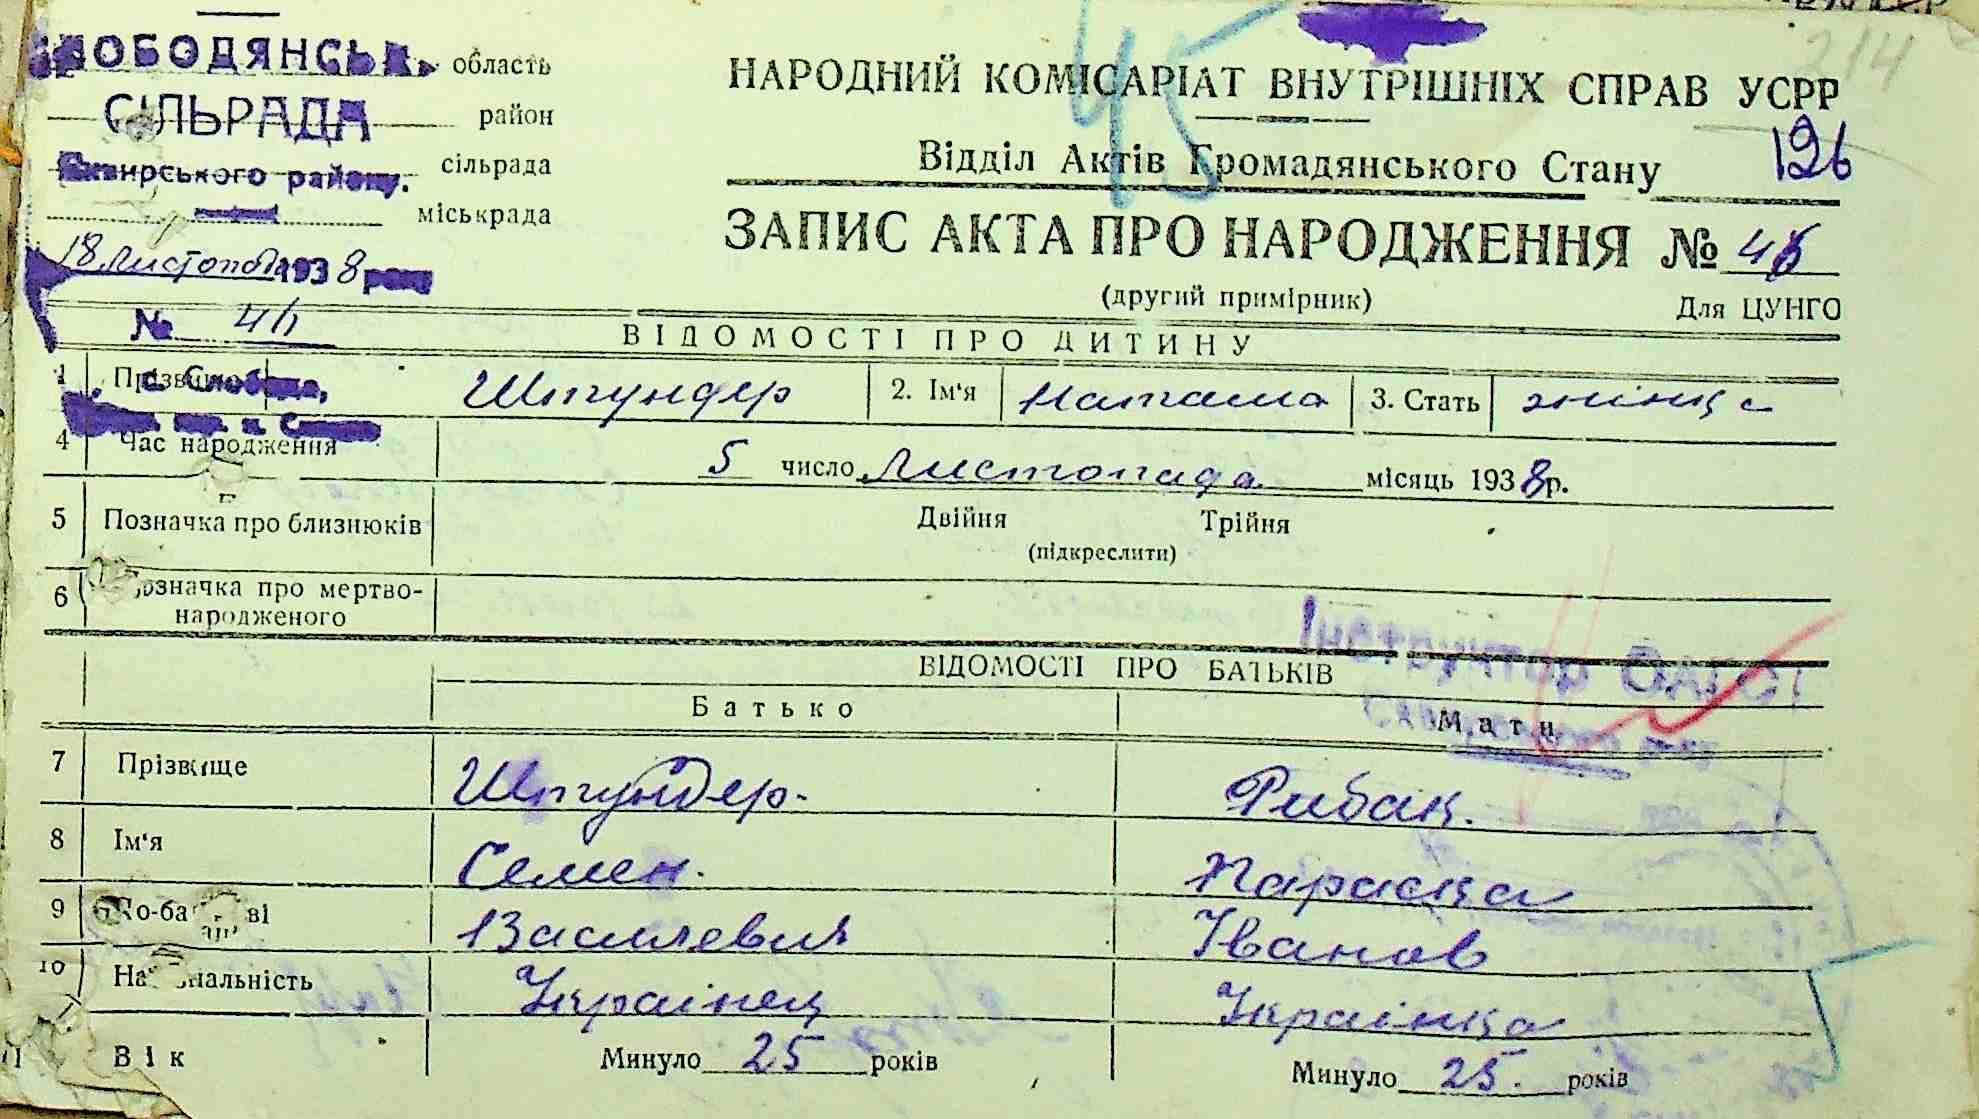 СЛОБОДЯНСЬК. область
СІЛЬРАДА район
Сквирського району. сільрада
міськрада
18 листопада 1938 року
№ 46
214
НАРОДНИЙ КОМІСАРІАТ ВНУТРІШНІХ СПРАВ УСРР
45
126
Відділ Актів Громадянського Стану
ЗАПИС АКТА ПРО НАРОДЖЕННЯ № 46
(другий примірник) Для ЦУНГО
ВІДОМОСТІ ПРО ДИТИНУ
1 Прізвище Штундер 2. Ім'я Наташа 3. Стать жінка
с. Слобода,
4 Час народження 5 число Листопада місяць 1938 р.
5 Позначка про близнюків Двійня Трійня
(підкреслити)
6 Позначка про мертво-
народженого
Інструктор ОАГСТ
Сквирського
ВІДОМОСТІ ПРО БАТЬКІВ
Батько Мати
7 Прізвище Штундер. Рибак.
8 Ім'я Семен. Параска
9 По-батькові Василевич Іванов
10 Національність Українец Українка
11 Вік Минуло 25 років Минуло 25. років